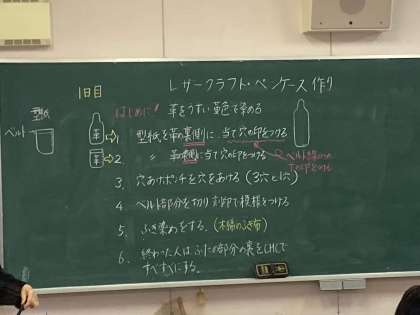 レザークラフト・ペンケース作り
1日目
はじめに! 革をうすい茶色で染める
型紙
ベルト
革 1 型紙を革の裏側に当て穴の印をつける
革 2 〃 革の表側に当て穴の印をつける
ベルト
3. 穴あけポンチで穴をあける (3穴と1穴)
4 ベルト部分を切り刻印で模様をつける
5. ふき染めをする。(木綿のふき布)
6. 終わった人は、ふたの部分の裏をCMCで
すべすべにする。